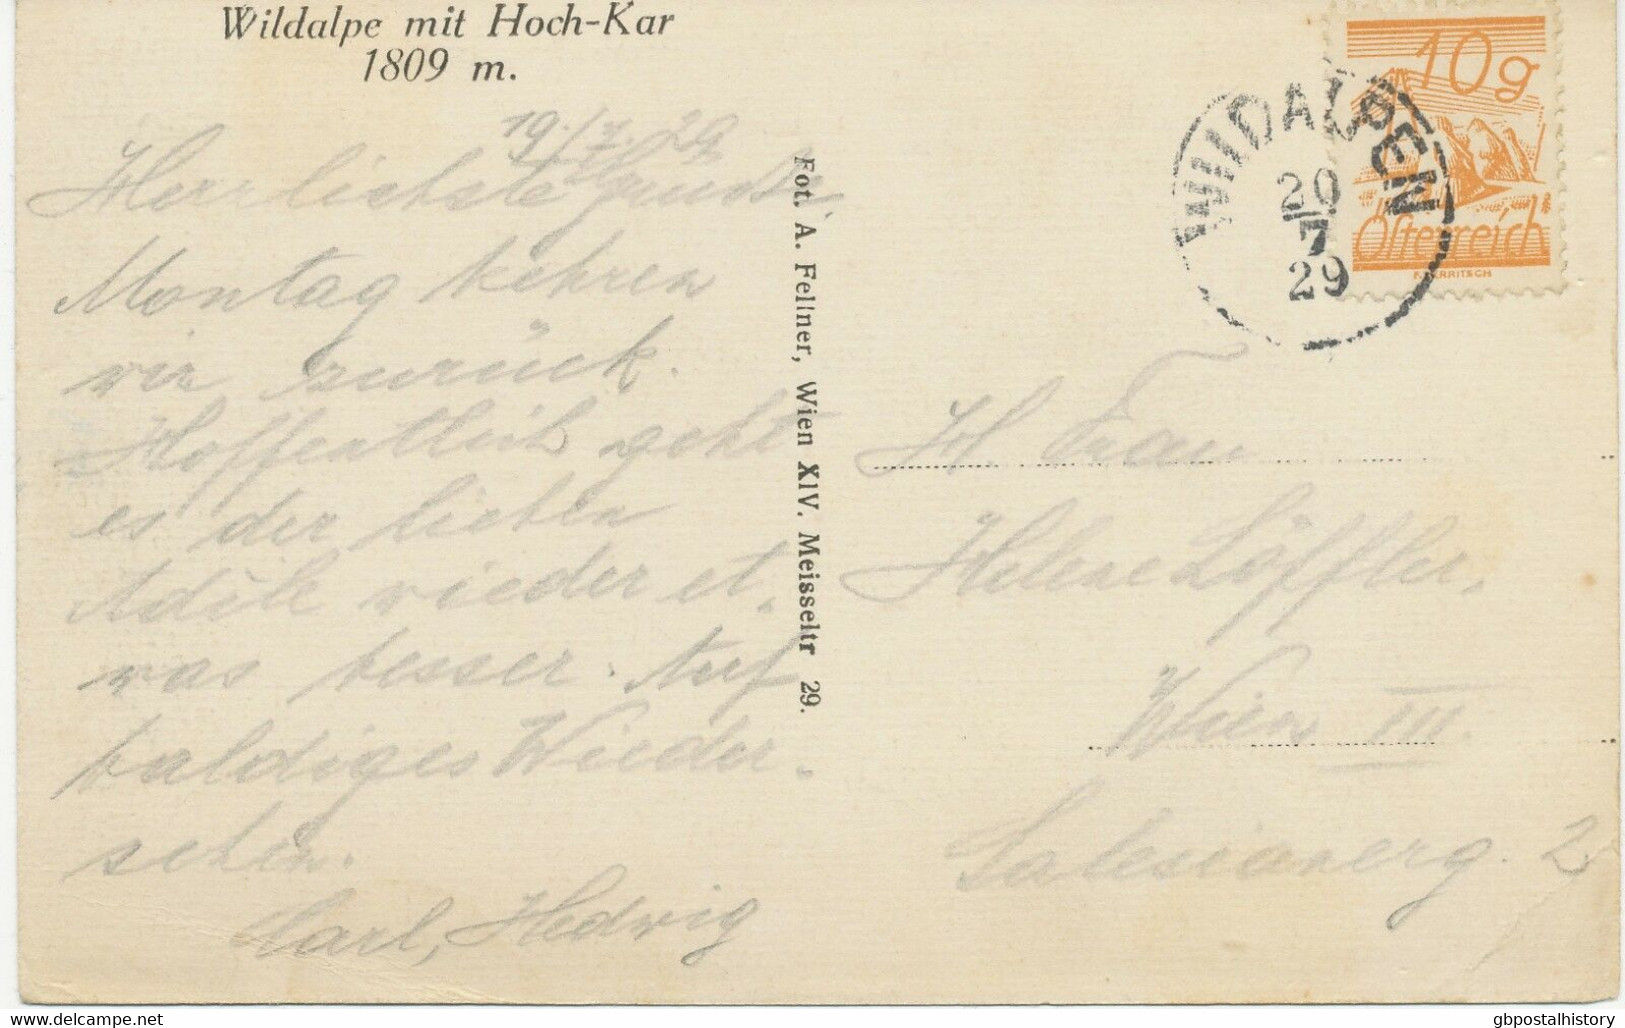 Wildalpe mit Hoch-Kar
1809 m.
19./7. 29
Herrlichste Grüße.
Montag kehren
wir zurück.
Hoffentlich geht
es der lieben
Adile wieder et.
was besser. Auf
baldiges Wieder.
sehen.
Carl, Hedwig
Fot. A. Fellner, Wien XIV. Meisseltr 29.
10g
Österreich
WILDALPEN
20
7
29
Frau
Helene Löffler,
Wien III.
Salesianerg. 2
www.delcampe.net
gbpostalhistory